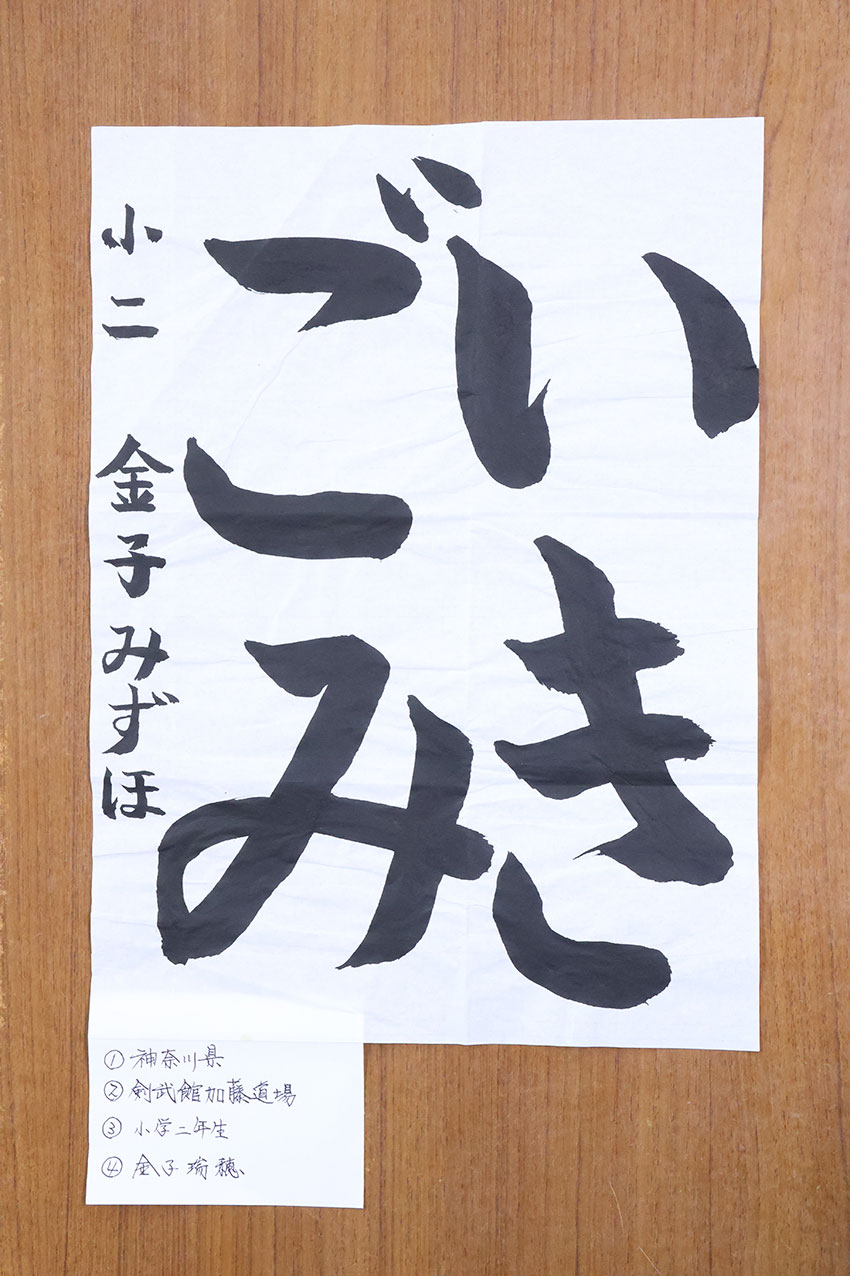 いき
ごみ
小二 金子みずほ
① 神奈川県
② 剣武館加藤道場
③ 小学二年生
④ 金子瑞穂